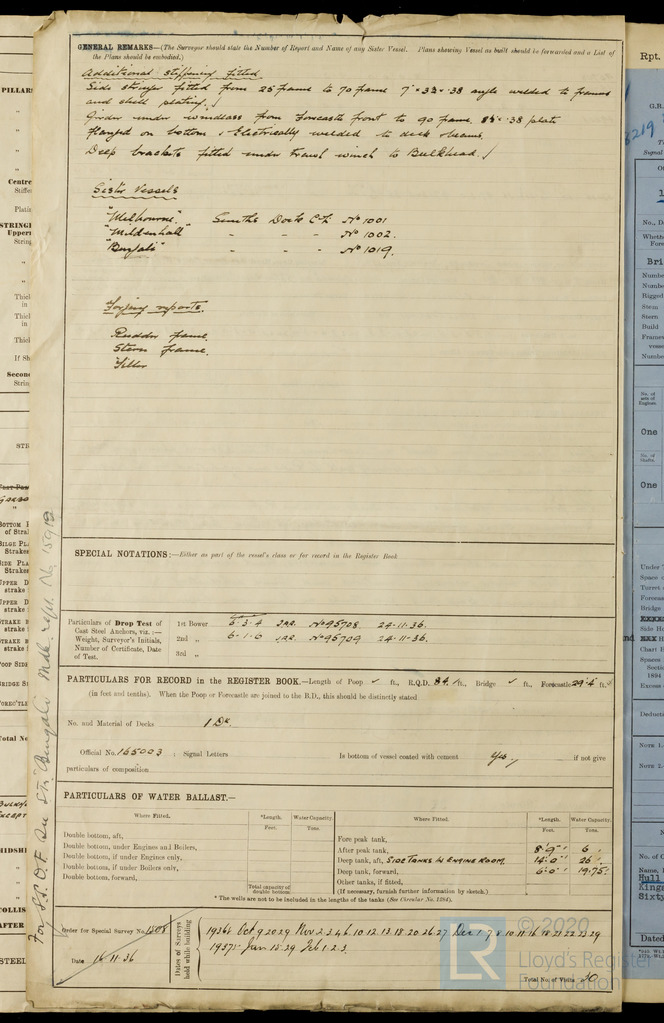 GENERAL REMARKS—(The Surveyor should state the Number of Report and Name of any Sister Vessel. Plans showing Vessel as built should be forwarded and a List of
the Plans should be embodied.)
Additional stiffening fitted.
Side stringer fitted from 25 frame to 70 frame 7 × 3½ × .38 angle welded to frames
and shell plating.
Girder under windlass from Forecastle front to 90 frame. .38 plate
flanged on bottom & Electrically welded to deck beams.
Deep brackets fitted under trawl winch to Bulkhead.
Sister Vessels
"Melbourne". Smiths Dock Co Ltd No 1001
"Mildenhall" - - - No 1002.
"Bengali" - - - No 1019.
Forging reports.
Rudder frame.
Stern frame.
Tiller
SPECIAL NOTATIONS:—Either as part of the vessel's class or for record in the Register Book
Particulars of Drop Test of
Cast Steel Anchors, viz.:—
Weight, Surveyor's Initials,
Number of Certificate, Date
of Test.
1st Bower 6-3-4 No 95708 24-11-36.
2nd „ 6-1-6 No 95709 24-11-36.
3rd „
PARTICULARS FOR RECORD in the REGISTER BOOK.—Length of Poop ✓ ft., R.Q.D. 84.1 ft., Bridge ✓ ft., Forecastle 29.4 ft.
(in feet and tenths). When the Poop or Forecastle are joined to the B.D., this should be distinctly stated
No. and Material of Decks 1 Dk.
Official No. 165003 ; Signal Letters Is bottom of vessel coated with cement Yes, if not give
particulars of composition
PARTICULARS OF WATER BALLAST.—
Where Fitted. *Length. Water Capacity. Where Fitted. *Length. Water Capacity.
Feet. Tons. Feet. Tons.
Double bottom, aft,
Double bottom, under Engines and Boilers,
Double bottom, if under Engines only,
Double bottom, if under Boilers only,
Double bottom, forward,
Total capacity of
double bottom
Fore peak tank,
After peak tank, 8'-9" 6
Deep tank, aft, SIDE TANKS IN ENGINE ROOM. 14'-0" 26
Deep tank, forward, 6'-0" 19.75
Other tanks, if fitted,
(If necessary, furnish further information by sketch.)
* The wells are not to be included in the lengths of the tanks (See Circular No. 1284).
Order for Special Survey No. 1508
Date 16.11.36
Dates of Surveys
held while building
1936: Oct 9 20 29 Nov 2 3 4 6 10 12 13 18 20 26 27 Dec 1 7 8 10 11 16 18 21 22 23 29
1937: Jan 15 29 Feb 1 2 3.
Total No. of Visits 30
© 2020
LR
Lloyd's Register
Foundation
Rpt.
One
One